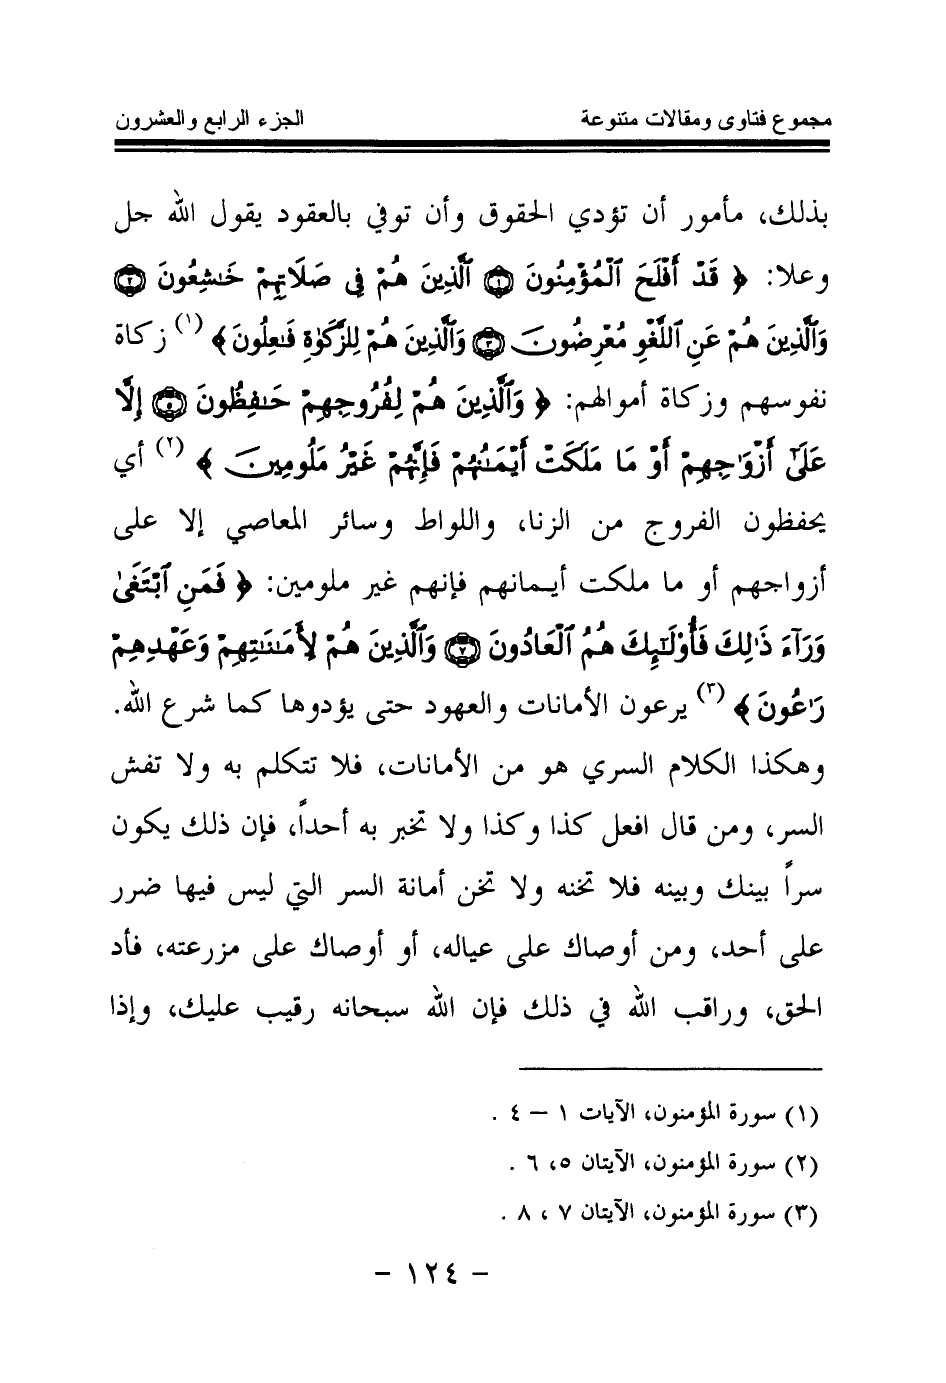 مجموع فتاوى ومقالات متنوعة الجزء الرابع والعشرون
بذلك، مأمور أن تؤدي الحقوق وأن توفي بالعقود يقول الله جل
وعلا: ﴿ قَدْ أَفْلَحَ ٱلْمُؤْمِنُونَ ۝١ ٱلَّذِينَ هُمْ فِى صَلَاتِهِمْ خَـٰشِعُونَ ۝٢
وَٱلَّذِينَ هُمْ عَنِ ٱللَّغْوِ مُعْرِضُونَ ۝٣ وَٱلَّذِينَ هُمْ لِلزَّكَوٰةِ فَـٰعِلُونَ﴾ (١) زكاة
نفوسهم وزكاة أموالهم: ﴿ وَٱلَّذِينَ هُمْ لِفُرُوجِهِمْ حَـٰفِظُونَ ۝٥ إِلَّا
عَلَىٰٓ أَزْوَٰجِهِمْ أَوْ مَا مَلَكَتْ أَيْمَـٰنُهُمْ فَإِنَّهُمْ غَيْرُ مَلُومِينَ ﴾ (٢) أي
يحفظون الفروج من الزنا، واللواط وسائر المعاصي إلا على
أزواجهم أو ما ملكت أيمانهم فإنهم غير ملومين: ﴿ فَمَنِ ٱبْتَغَىٰ
وَرَآءَ ذَٰلِكَ فَأُوْلَـٰٓئِكَ هُمُ ٱلْعَادُونَ ۝٧ وَٱلَّذِينَ هُمْ لِأَمَـٰنَـٰتِهِمْ وَعَهْدِهِمْ
رَٰعُونَ ﴾ (٣) يرعون الأمانات والعهود حتى يؤدوها كما شرع الله.
وهكذا الكلام السري هو من الأمانات، فلا تتكلم به ولا تفش
السر، ومن قال افعل كذا وكذا ولا تخبر به أحداً، فإن ذلك يكون
سراً بينك وبينه فلا تخنه ولا تخن أمانة السر التي ليس فيها ضرر
على أحد، ومن أوصاك على عياله، أو أوصاك على مزرعته، فأد
الحق، وراقب الله في ذلك فإن الله سبحانه رقيب عليك، وإذا
(١) سورة المؤمنون، الآيات ١ – ٤ .
(٢) سورة المؤمنون، الآيتان ٥، ٦ .
(٣) سورة المؤمنون، الآيتان ٧ ، ٨ .
- ١٢٤ -